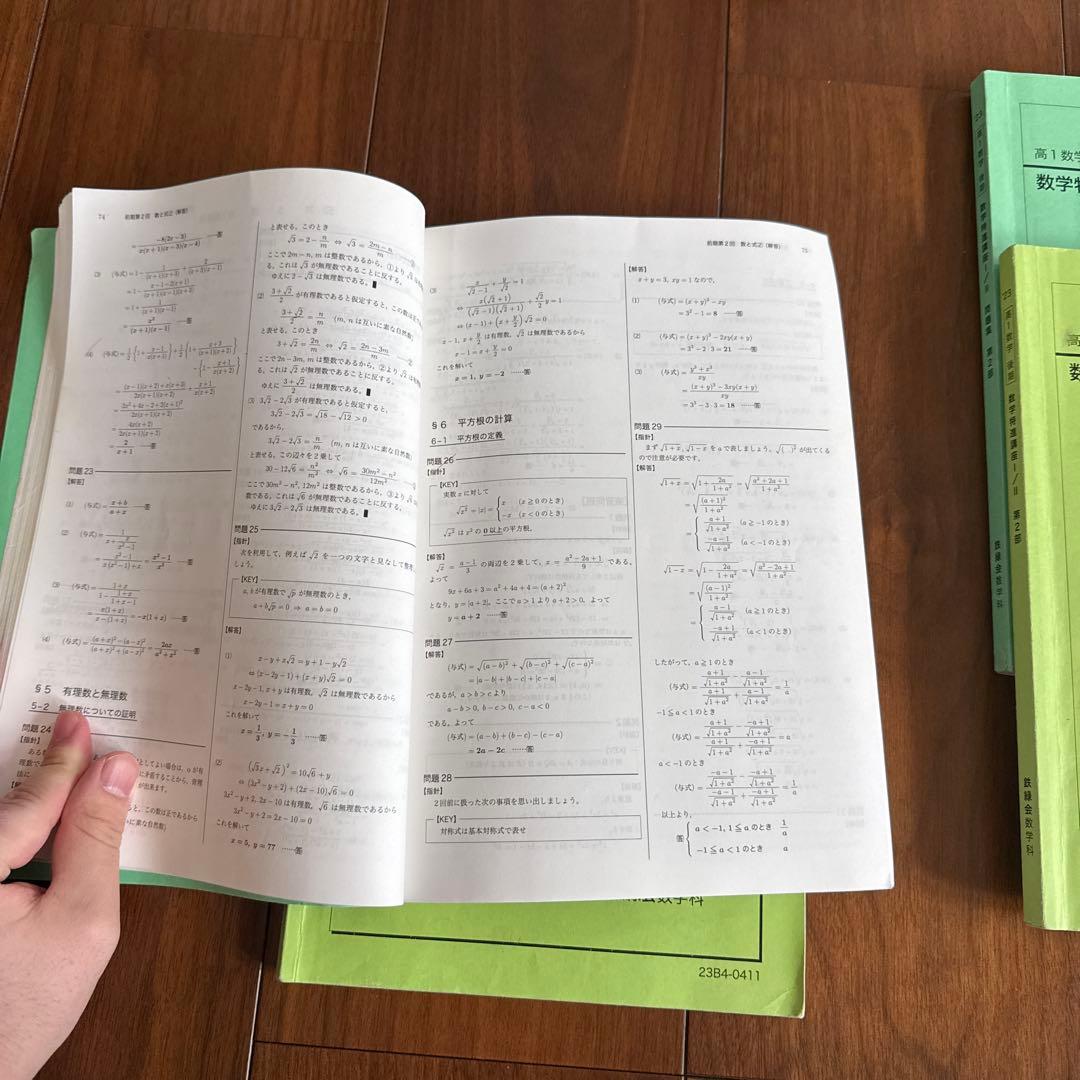 74
前期第2回 数と式② (解答)
= −8(2x−3) / x(x+1)(x−3)(x−4) ……答
= 1 − x−1−2(x+1) / (x+1)(x−1)(x+3)
問題 23
[解答]
(1) (与式) = x+b / a+x ……答
(2) (与式) = 1 / x + x/(x²−1)
= x²−1 / x(x²−1)+x = x²−1 / x³ ……答
= x(1+x) / x−(1+x) = −x(1+x) ……答
(4) (与式) = (a+x)²−(a−x)² / (a+x)²+(a−x)² = 2ax / a²+x² ……答
§5 有理数と無理数
5-2 無理数についての証明
問題 24
[指針]
と表せる。このとき
√3 = 2 − n/m ⇔ √3 = 2m−n / m
ここで 2m−n, m は整数であるから、①より √3
る。これは √3 が無理数であることに反する。
ゆえに 2−√3 は無理数である。■
(2) 3+√2 / 2 が有理数であると仮定すると、この数は正
3+√2 / 2 = n/m (m, n は互いに素な自然数)
と表せる。このとき
3+√2 = 2n/m ⇔ √2 = 2n−3m / m
ここで 2n−3m, m は整数であるから、②より √2
る。これは √2 が無理数であることに反する。
ゆえに 3+√2 / 2 は無理数である。■
(3) 3√2−2√3 が有理数であると仮定すると、
3√2−2√3 = √18 − √12 > 0
であるから、
3√2−2√3 = n/m (m, n は互いに素な自然数)
と表せる。この辺々を2乗して
30−12√6 = n²/m² ⇔ √6 = 30m²−n² / 12m²
ここで 30m²−n², 12m² は整数であるから、③より √6
数である。これは √6 が無理数であることに反する。
ゆえに 3√2−2√3 は無理数である。■
問題 25
[指針]
次を利用して、例えば √2 を一つの文字と見なして整理
しましょう。
【KEY】
a, b が有理数で √p が無理数のとき、
a+b√p = 0 ⇒ a = b = 0
[解答]
(1)
x−y+x√2 = y+1−y√2
⇔ (x−2y−1)+(x+y)√2 = 0
x−2y−1, x+y は有理数、√2 は無理数であるから
x−2y−1 = x+y = 0
これを解いて
x = 1/3, y = −1/3 ……答
(2)
(√3x+√2)² = 10√6+y
⇔ (3x²−y+2)+(2x−10)√6 = 0
3x²−y+2, 2x−10 は有理数、√6 は無理数であるから
3x²−y+2 = 2x−10 = 0
これを解いて
x = 5, y = 77 ……答
前期第2回 数と式② (解答)
75
(3) x / √2−1 + y / √2 = 1
⇔ x(√2+1) / (√2−1)(√2+1) + √2/2 y = 1
⇔ (x−1)+(x+y/2)√2 = 0
x−1, x+y/2 は有理数、√2 は無理数であるから
x−1 = x+y/2 = 0
これを解いて
x = 1, y = −2 ……答
§6 平方根の計算
6-1 平方根の定義
問題 26
[指針]
【KEY】
実数 x に対して
√x² = |x| = { x (x≧0のとき)
−x (x<0のとき)
√x² は x² の 0 以上の平方根。
[解答]
√x = a−1 / 3 の両辺を2乗して、x = a²−2a+1 / 9 である。
よって
9x+6a+3 = a²+4a+4 = (a+2)²
となり、y = |a+2|。ここで a>1 より a+2>0。よって
y = a+2 ……答
問題 27
[解答]
(与式) = √(a−b)² + √(b−c)² + √(c−a)²
= |a−b|+|b−c|+|c−a|
であるが、a>b>c より
a−b>0, b−c>0, c−a<0
である。よって
(与式) = (a−b)+(b−c)−(c−a)
= 2a−2c ……答
問題 28
[指針]
2回前に扱った次の事項を思い出しましょう。
【KEY】
対称式は基本対称式で表せ
[解答]
x+y = 3, xy = 1 なので、
(1) (与式) = (x+y)²−xy
= 3²−1 = 8 ……答
(2) (与式) = (x+y)³−2xy(x+y)
= 3³−2·3 = 21 ……答
(3) (与式) = y³+x³ / xy
= (x+y)³−3xy(x+y) / xy
= 3³−3·3 = 18 ……答
問題 29
[指針]
まず √1+x, √1−x を a で表しましょう。√( )² が出てくる
ので注意が必要です。
[解答]
√1+x = √1+ 2a / 1+a² = √a²+2a+1 / 1+a²
= √(a+1)² / 1+a²
= { a+1 / √1+a² (a≧−1のとき)
−a−1 / √1+a² (a<−1のとき)
√1−x = √1− 2a / 1+a² = √a²−2a+1 / 1+a²
= √(a−1)² / 1+a²
= { a−1 / √1+a² (a≧1のとき)
−a+1 / √1+a² (a<1のとき)
したがって、a≧1 のとき
(与式) = a+1/√1+a² − a−1/√1+a² / a+1/√1+a² + a−1/√1+a² = 1/a
−1≦a<1 のとき
(与式) = a+1/√1+a² − −a+1/√1+a² / a+1/√1+a² + −a+1/√1+a² = a
a<−1 のとき
(与式) = −a−1/√1+a² − −a+1/√1+a² / −a−1/√1+a² + −a+1/√1+a² = 1/a
以上より、
答 { a<−1, 1≦a のとき 1/a
−1≦a<1 のとき a
23B4-0411
高1数学
23 高1数学 後期 数学特進講座Ⅰ/Ⅱ 問題集 第2部
鉄緑会数学科
23 高1数学 後期 数学特進講座Ⅰ/Ⅱ 第2部
鉄緑会数学科